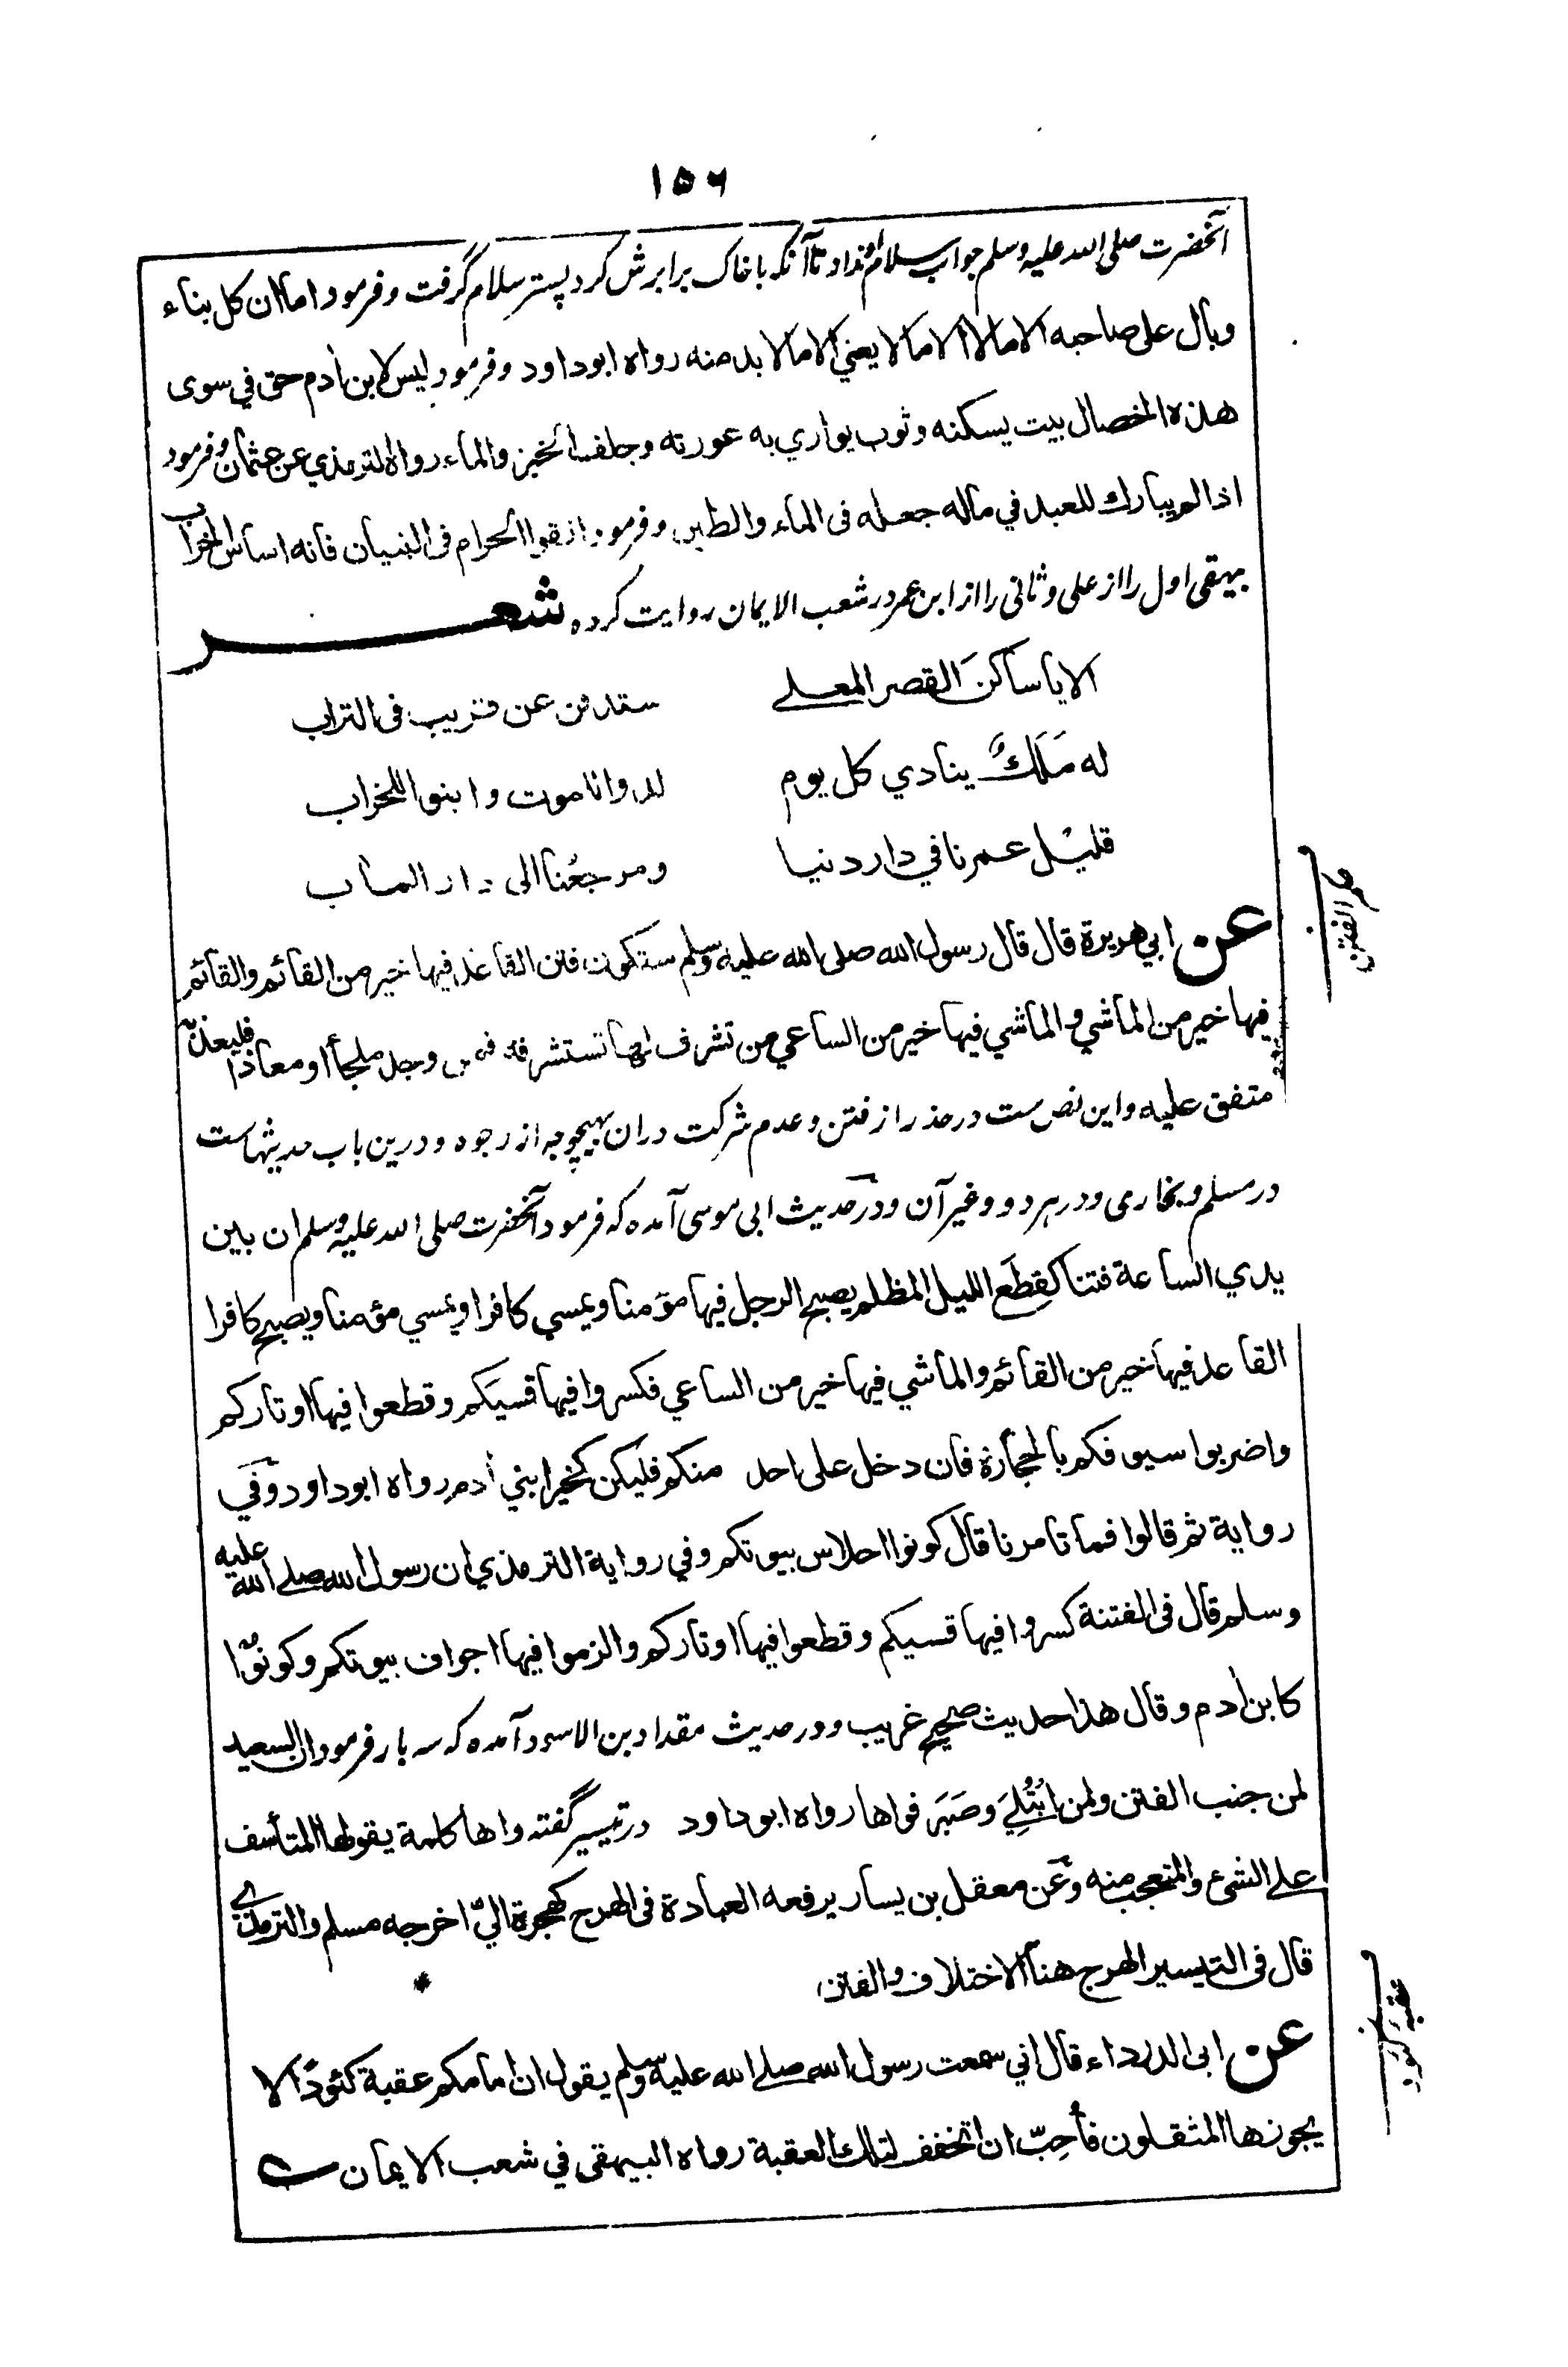 ١٥٦
آنحضرت صلی الله علیه وسلم جواب سلام او نداد تا آنکه با خاک برابرش کرد پستر سلام گرفت و فرمود اما ان كل بناء
وبال على صاحبه الا مالا الا مالا يعني الا مالا بد منه رواه ابو داود وفرمود ليس لابن أدم حق في سوى
هذه الخصال بيت يسكنه وثوب يواري به عورته وجلف الخبز والماء رواه الترمذي عن عثمان وفرمود
اذا لم يبارك للعبد في ماله جعله فى الماء والطين وفرمود اتقوا الحرام فى البنيان فانه اساس الخراب
بیهقی اول را از علی و ثانی را از ابن عمر در شعب الایمان روایت کرده شعر
الا يا ساكن القصر المعلے ستدفن عن قريب فى التراب
له مَلَكٌ ينادي كل يوم لدوا للموت وابنوا للخراب
قليل عمرنا في دار دنيا ومرجعُنا الى دار المآب
عن ابي هريرة قال قال رسول الله صلى الله عليه وسلم ستكون فتن القاعد فيها خير من القائم والقائم
فيها خير من الماشي والماشي فيها خير من الساعي من تشرف لها تستشرفه فمن وجد ملجأ او معاذا فليعذ به
متفق عليه واین نص ست در حذر از فتن و عدم شرکت دران بهیچ وجه از وجوه و درین باب حدیثهاست
در مسلم و بخاری و در هر دو و غیر آن و در حدیث ابی موسی آمده که فرمود آنحضرت صلی الله علیه وسلم ان بين
يدي الساعة فتنا كقِطَع الليل المظلم يصبح الرجل فيها مؤمنا ويمسي كافرا ويمسي مؤمنا ويصبح كافرا
القاعد فيها خير من القائم والماشي فيها خير من الساعي فكسروا فيها قسيَكم وقطعوا فيها اوتاركم
واضربوا سيوفكم بالحجارة فان دخل على احد منكم فليكن كخير ابني أدم رواه ابو داود وفي
رواية ثم قالوا فما تامرنا قال كونوا احلاس بيوتكم وفي رواية الترمذي ان رسول الله صلے الله عليه
وسلم قال فى الفتنة كسروا فيها قسيكم وقطعوا فيها اوتاركم والزموا فيها اجواف بيوتكم وكونوا
كابن أدم وقال هذا حديث صحيح غريب و در حدیث مقداد بن الاسود آمده که سه بار فرمود ان السعيد
لمن جنب الفتن ولمن ابْتُلِيَ وصَبَرَ فواها رواه ابو داود در تیسیر گفته واها كلمة يقولها المتأسف
علے الشئ والمتعجب منه وعن معقل بن يسار يرفعه العبادة فى الهرج كهجرة اليّ اخرجه مسلم والترمذي
قال فى التيسير الهرج هنا الاختلاف والفتن
عن ابى الدرداء قال اني سمعت رسول الله صلے الله عليه وسلم يقول ان امامكم عقبة كئودًا لا
يجوزها المثقلون فأحِبّ ان اتخفف لتلك العقبة رواه البيهقى في شعب الايمان